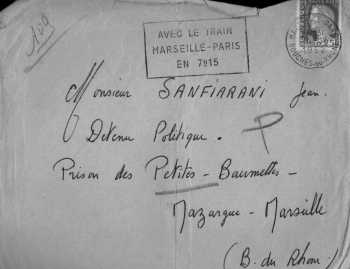 AVEC LE TRAIN
MARSEILLE-PARIS
EN 7H15
Monsieur SANFIARANI Jean.
Detenu Politique.
P
Prison des Petites-Baumettes-
Mazargue-Marseille
(B. du Rhone)